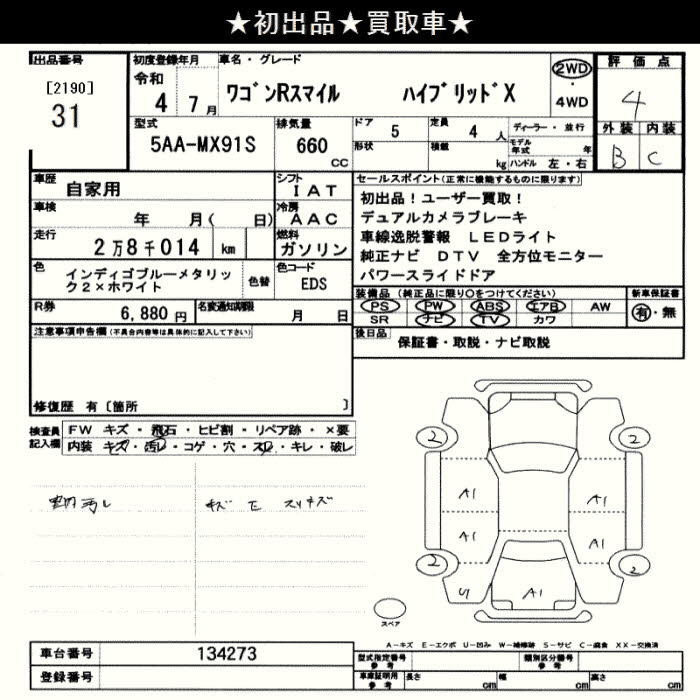 ★初出品★買取車★
出品番号
[2190]
31
初度登録年月
令和
4 7月
車名・グレード
ワゴンRスマイル ハイブリッドX
2WD
・
4WD
評価点
4
外装 内装
B C
型式
5AA-MX91S
排気量
660
CC
ドア 5
定員 4 人
ディーラー・並行
形状
積載 kg
モデル年式 年
ハンドル 左・右
車歴
自家用
シフト
IAT
車検
年 月( 日)
冷房
AAC
走行
2万8千014 km
燃料
ガソリン
色
インディゴブルーメタリッ
ク2×ホワイト
色替
色コード
EDS
R券
6,880円
名変通知期限
月 日
セールスポイント(正常に機能するものに限ります)
初出品!ユーザー買取!
デュアルカメラブレーキ
車線逸脱警報 LEDライト
純正ナビ DTV 全方位モニター
パワースライドドア
装備品(純正品に限り○をつけてください)
新車保証書
PS PW ABS エアB AW
有・無
SR ナビ TV カワ
後日品
保証書・取説・ナビ取説
注意事項申告欄(不具合内容等は具体的に記入して下さい)
修復歴 有〔箇所 〕
検査員
記入欄
FW キズ・飛石・ヒビ割・リペア跡・×要
内装 キズ・汚レ・コゲ・穴・スレ・キレ・破レ
汚レ
キズ E スリキズ
2 2
A1 A1
A1 A1
2 2
U A1
スペア
A-キズ E-エクボ U-凹み W-補修跡 S-サビ C-腐食 XX-交換済
車台番号
134273
登録番号
型式指定番号
参考
類別区分番号
参考
車庫証明用
参考
長さ cm
幅 cm
高さ cm